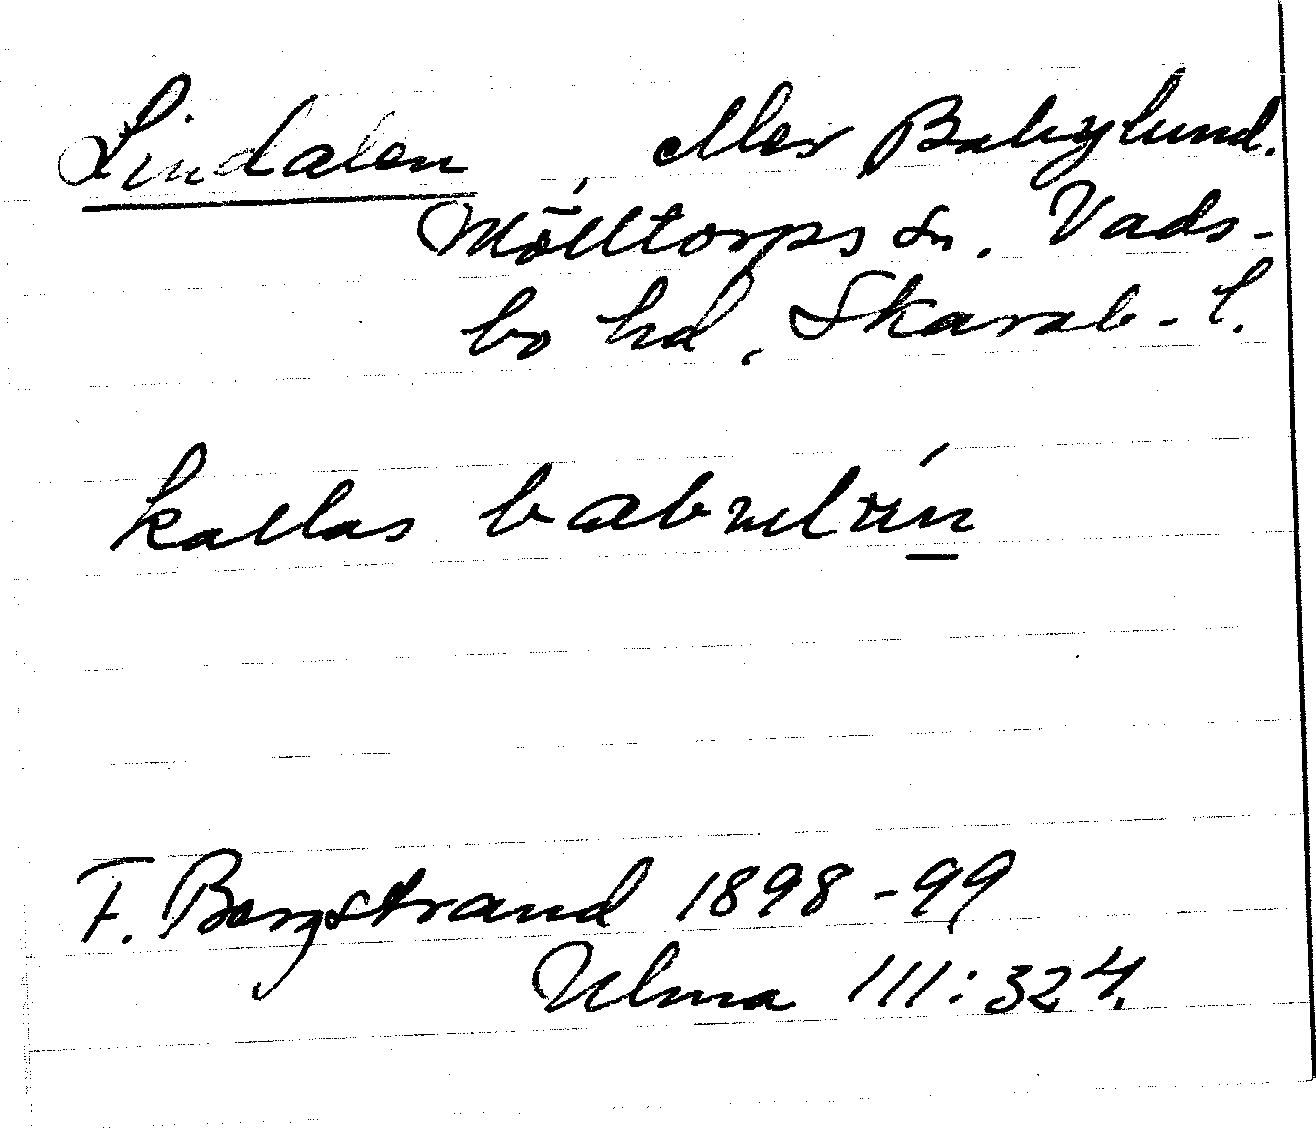 Lindalen, eller Babylund.
Mölltorps sn. Vads-
bo hd, Skarab. l.
kallas
F. Bergstrand 1898-99
Ulma 111:324.